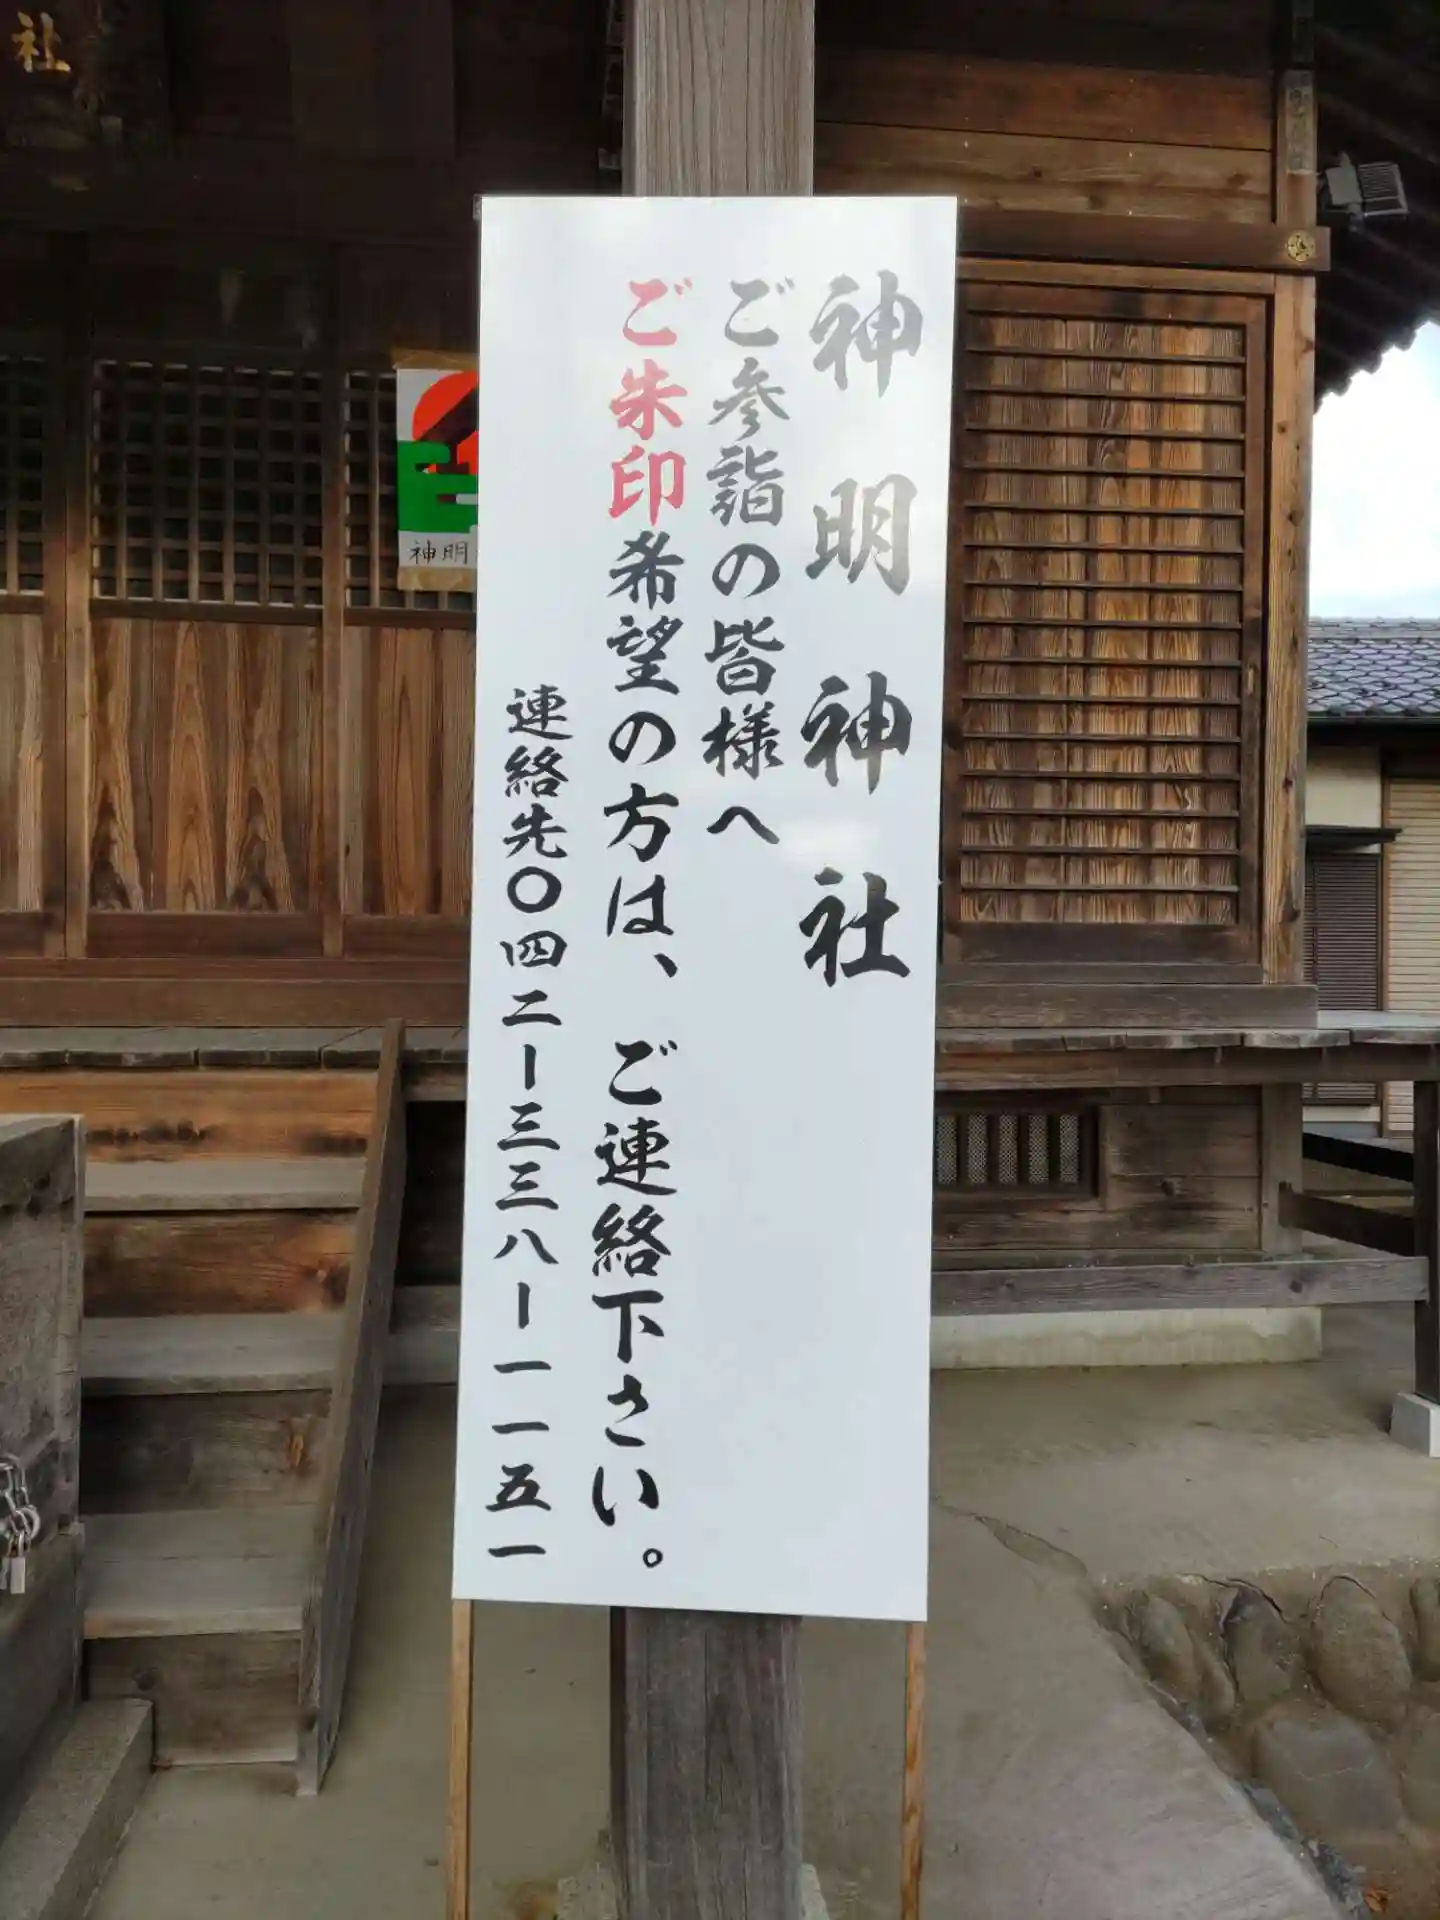 神明神社
ご参詣の皆様へ
ご朱印希望の方は、ご連絡下さい。
連絡先〇四二ー三三八ー一一五一
神明
社